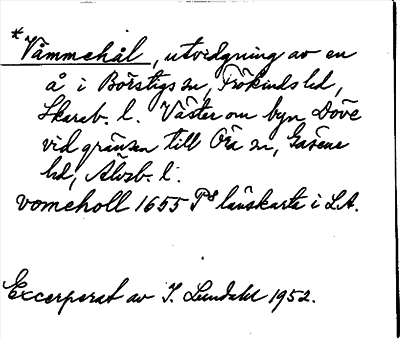 *Våmmehål, utvidgning av en
å i Börstigs sn, Frökinds hd,
Skarab. l. Väster om byn Dove
vid gränsen till Öra sn, Gäsene
hd, Älvsb. l.
vomeholl 1655 P8 länskarta i L.A.
Excerperat av I. Lundahl 1952.